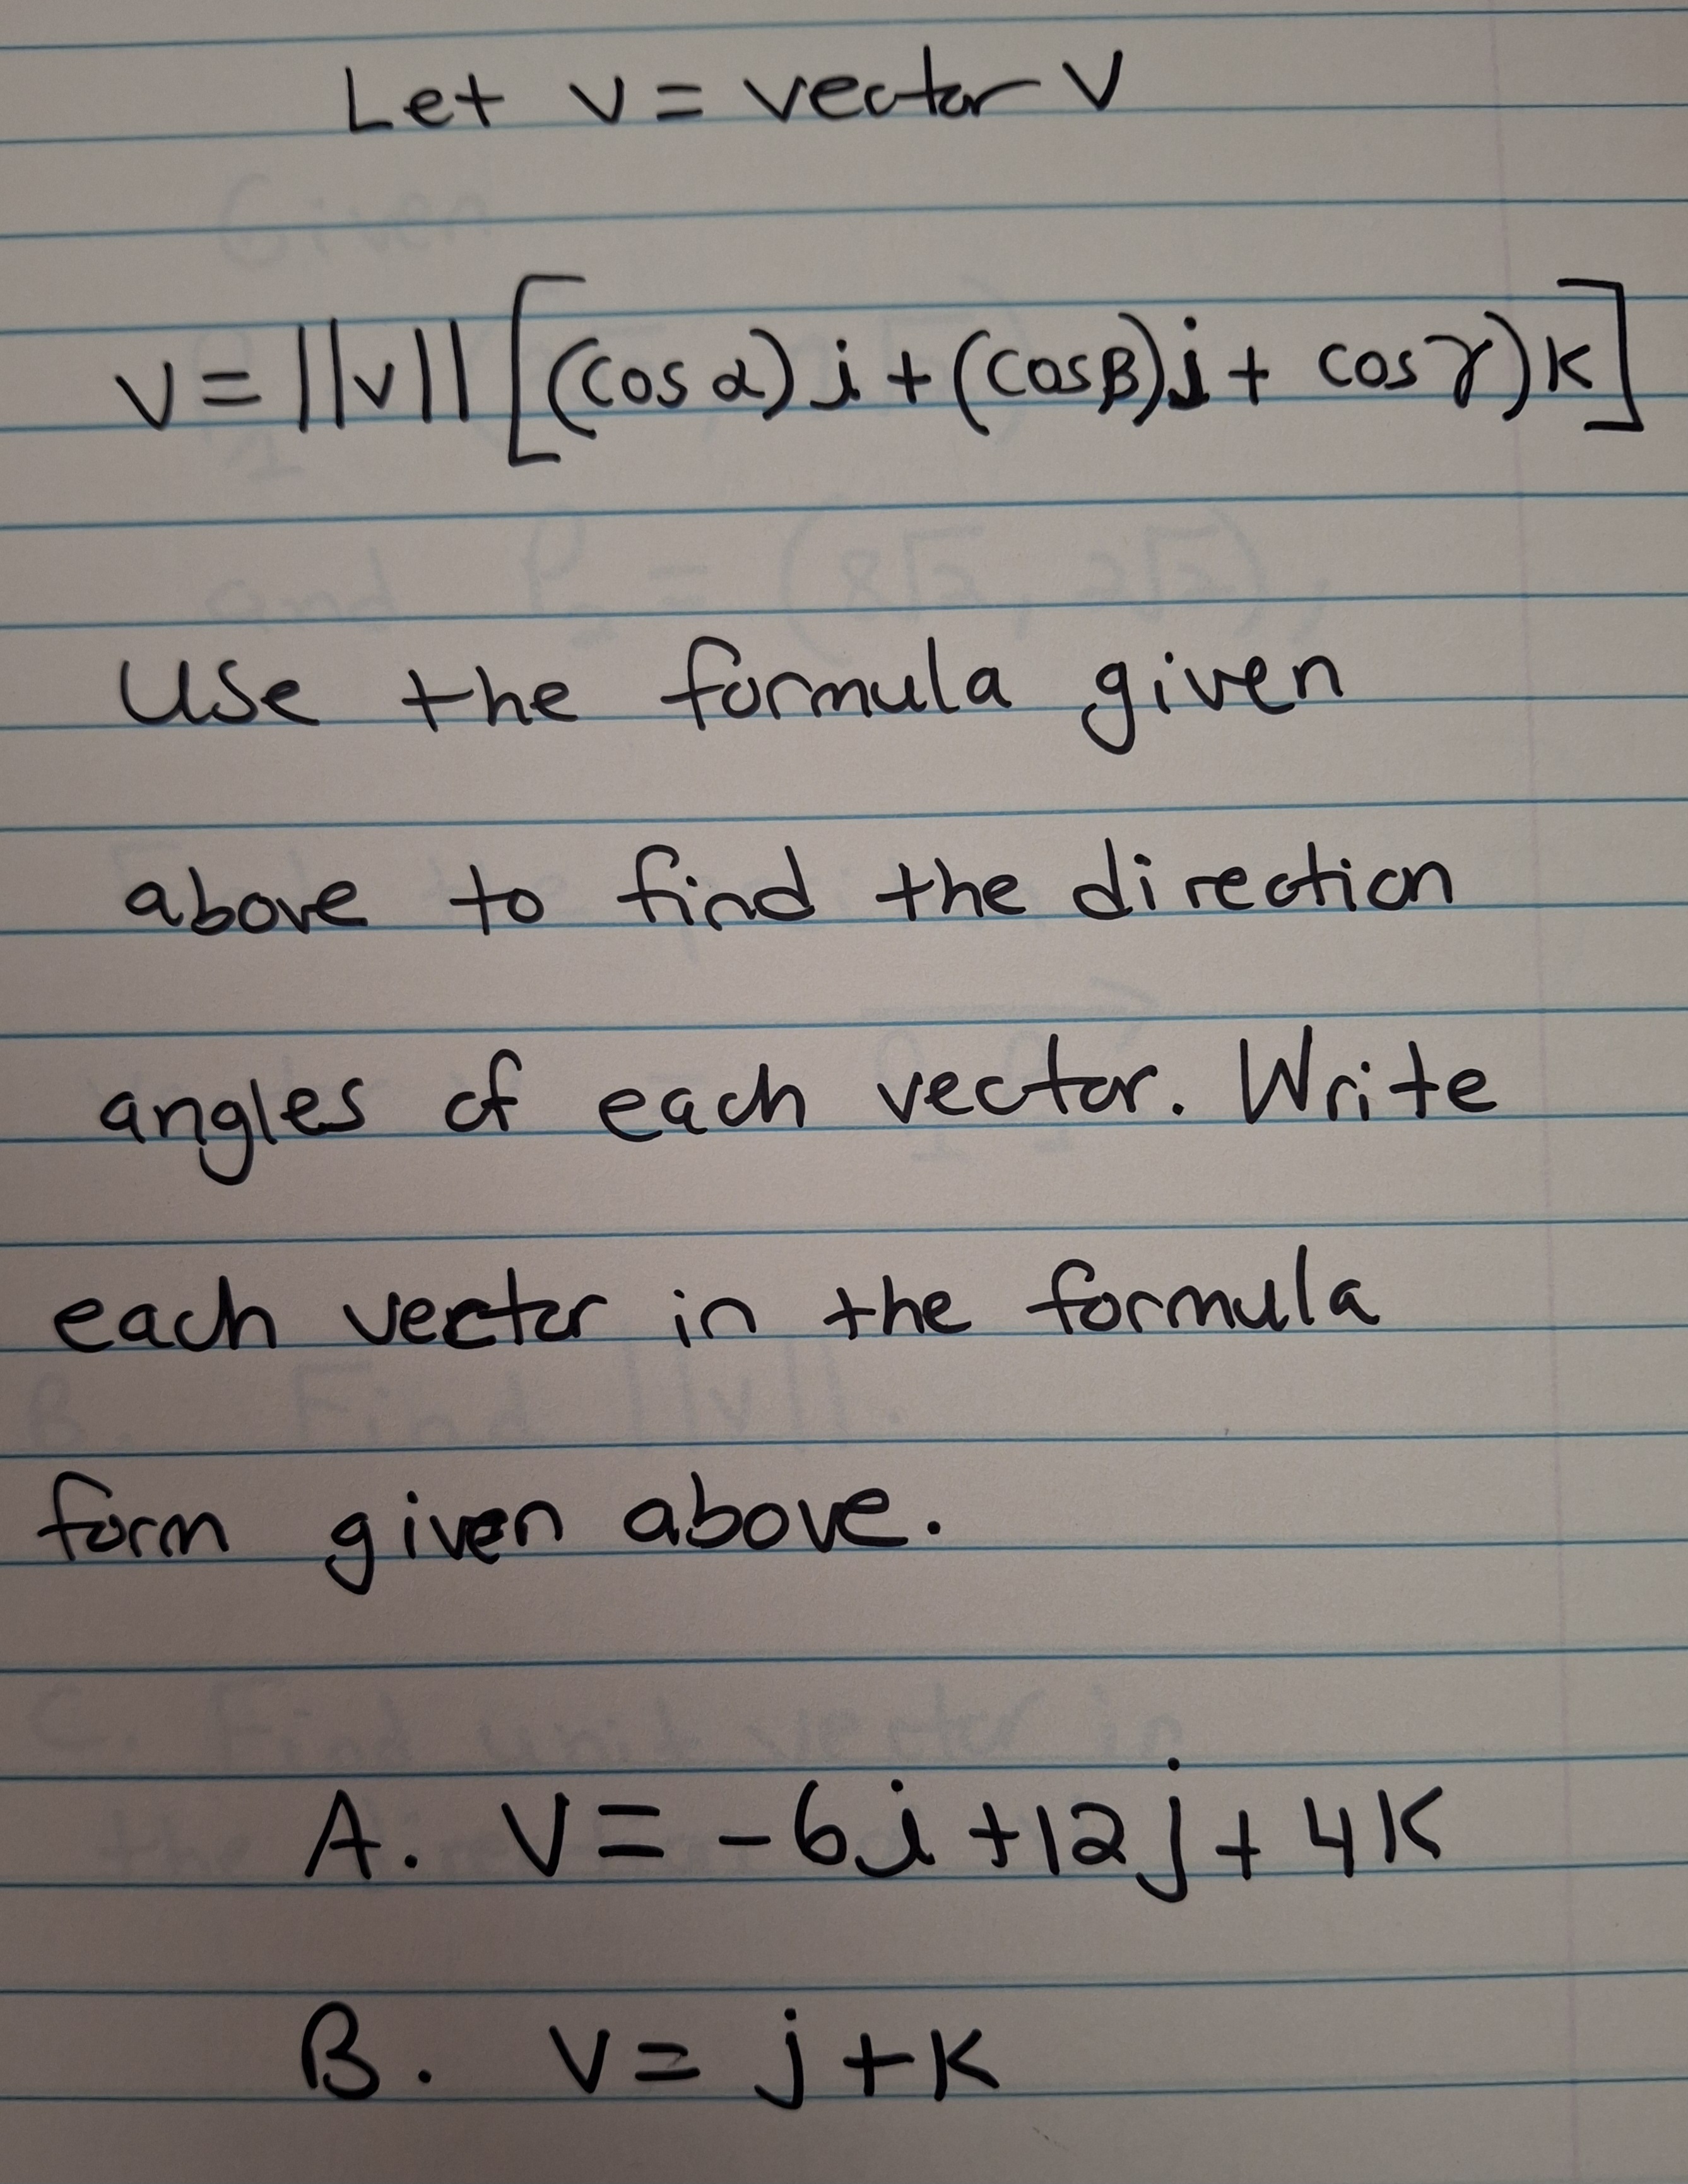 Let v = vector v
v = ||v|| [(cos α) i + (cos β) j + cos γ) k]
Use the formula given
above to find the direction
angles of each vector. Write
each vector in the formula
form given above.
A. V = -6i + 12j + 4k
B. v = j + k